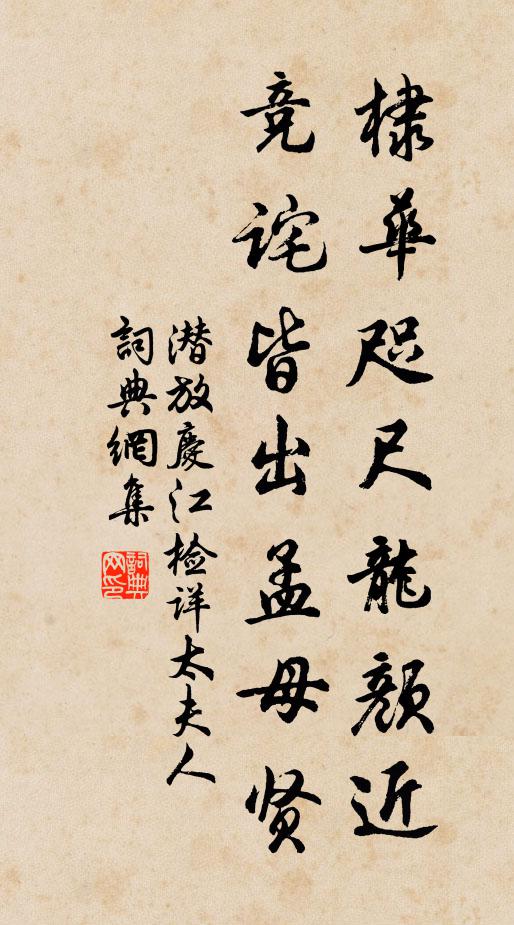 棣華咫尺龍顏近
竞詫皆出孟母贤
潜放慶江检详太夫人
詞典網集
詞典网印